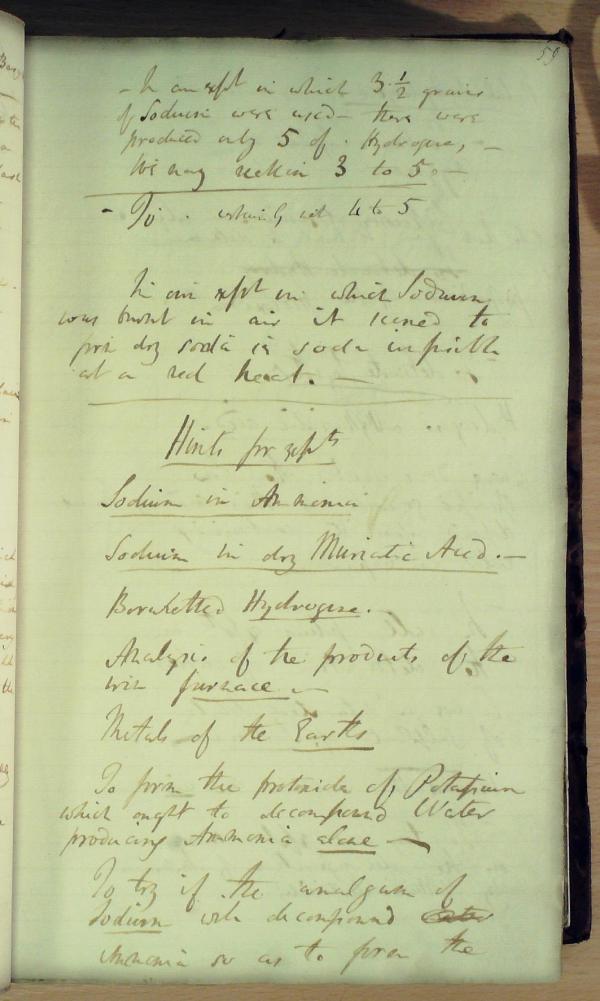 59
- In an expt in which 3 1/2 grains
of Sodium were used - there were
produced only 5 of Hydrogene, -
We may reckon 3 to 5. -
- 4 to 5
In an expt in which Sodium
was burnt in air it seemed to
form dry soda is soda
at a red heat. -
Hints for expts
Sodium in Ammonia
Sodium in dry Muriatic Acid. -
Boruretted Hydrogene.
Analysis of the products of the
iron furnace -
Metals of the Earths
To form the protoxide of Potassium
which ought to decompound Water
producing Ammonia alone -
To try if the amalgam of
Sodium will decompound Water
Ammonia so as to form the